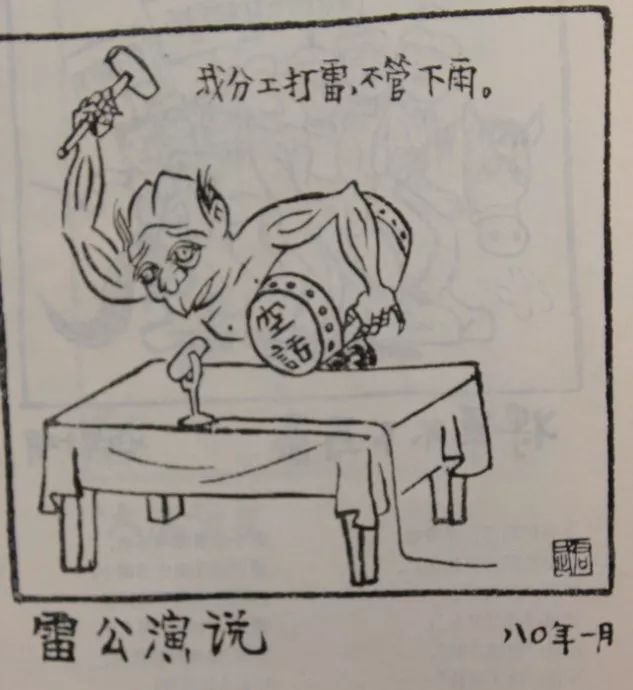 我分工打雷，不管下雨。
空
话
雷公演说
八〇年一月